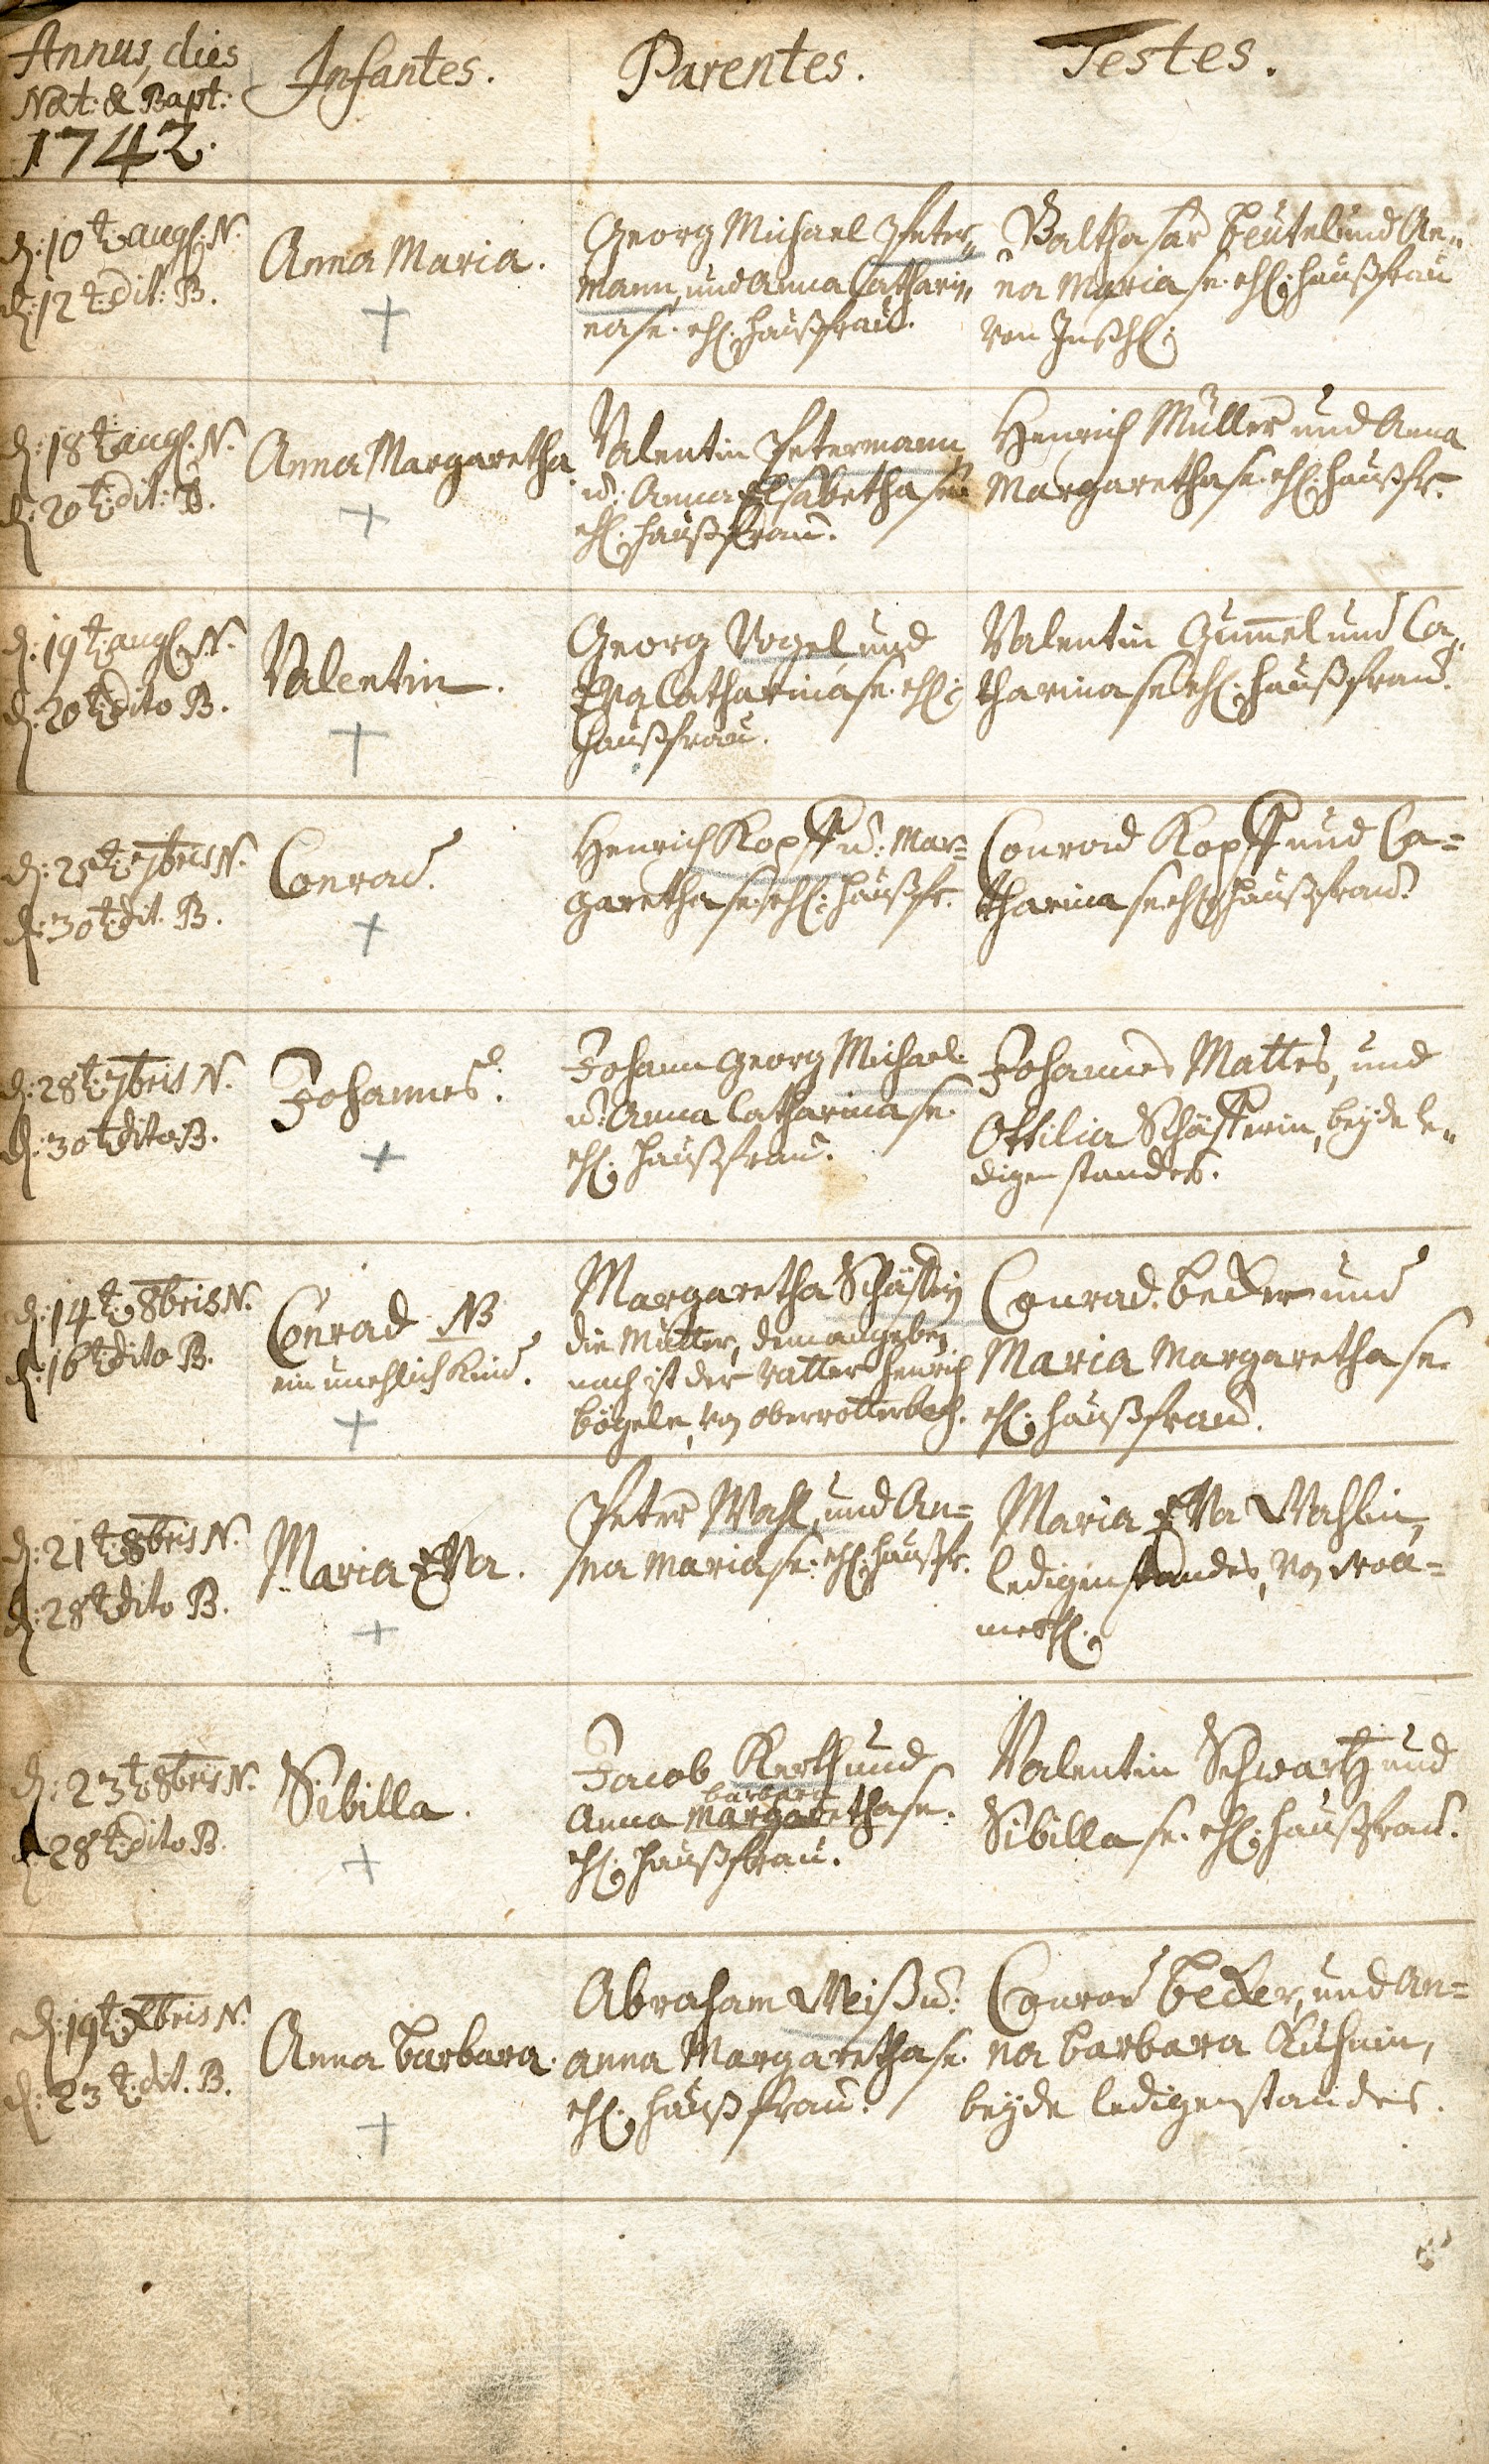 Annus, dies
Nat: & Bapt:
1742.
Infantes.
Parentes.
Testes.
d: 10t. aug. N.
d: 12t. dit: B.
Anna Maria.
Georg Michael Peter„
mann, und Anna Cathari„
na se. ehl. haußfrau.
Balthasar Beutel und An„
na Maria se. ehl. haußfrau
von
d: 18t. aug. N.
d: 20t. dit: B.
Anna Margaretha
Valentin Petermann
u: Anna Elsabetha sei
ehl. haußfrau.
Henrich Müller und Anna
Margaretha se. ehl. haußfr.
d: 19t. aug. N.
d: 20t. dito B.
Valentin.
Georg Vogel und
Eva Catharina se. ehl.
haußfrau.
Valentin Gum̄el und Ca„
tharina se ehl. haußfrau.
d: 25t. 7bris N.
d: 30t. dit. B.
Conrad.
Henrich Kopff u: Mar=
garetha se. ehl. haußfr.
Conrad Kopff und Ca=
tharina se ehl haußfrau.
d: 28t. 7bris N.
d: 30t. dito B.
Johannes.
Johann Georg Michael
u: Anna Catharina se.
ehl. haußfrau.
Johannes Mattes, und
Ottilia Schäfferin, beyde le„
digen standes.
d: 14t. 8bris N.
d: 16t. dito B.
Conrad NB
ein unehlich Kind.
Margaretha Schäffrin
die Mutter, dem angeben
nach ist der Vatter Henrich
Bögele, von oberrotterbach.
Conrad Becker und
Maria Margaretha se.
ehl. haußfrau.
d: 21t. 8bris N.
d: 28t. dito B.
Maria Eva.
Peter Wahl, und An=
na Maria se. ehl. haußfr.
Maria Eva Wahlin,
ledigen standes, von
d: 23t. 8bris N.
d: 28t. dito B.
Sibilla.
Jacob Kerth und
barbara
Anna Margaretha se.
ehl. haußfrau.
Valentin Schwartz und
Sibilla se. ehl. haußfrau.
d: 19t. Xbris N.
d: 23t. dit. B.
Anna barbara.
Abraham Weiß u:
anna Margaretha se.
ehl. haußfrau.
Conrad Becker, und An=
na barbara Kuhnin,
beyde ledigen standes.